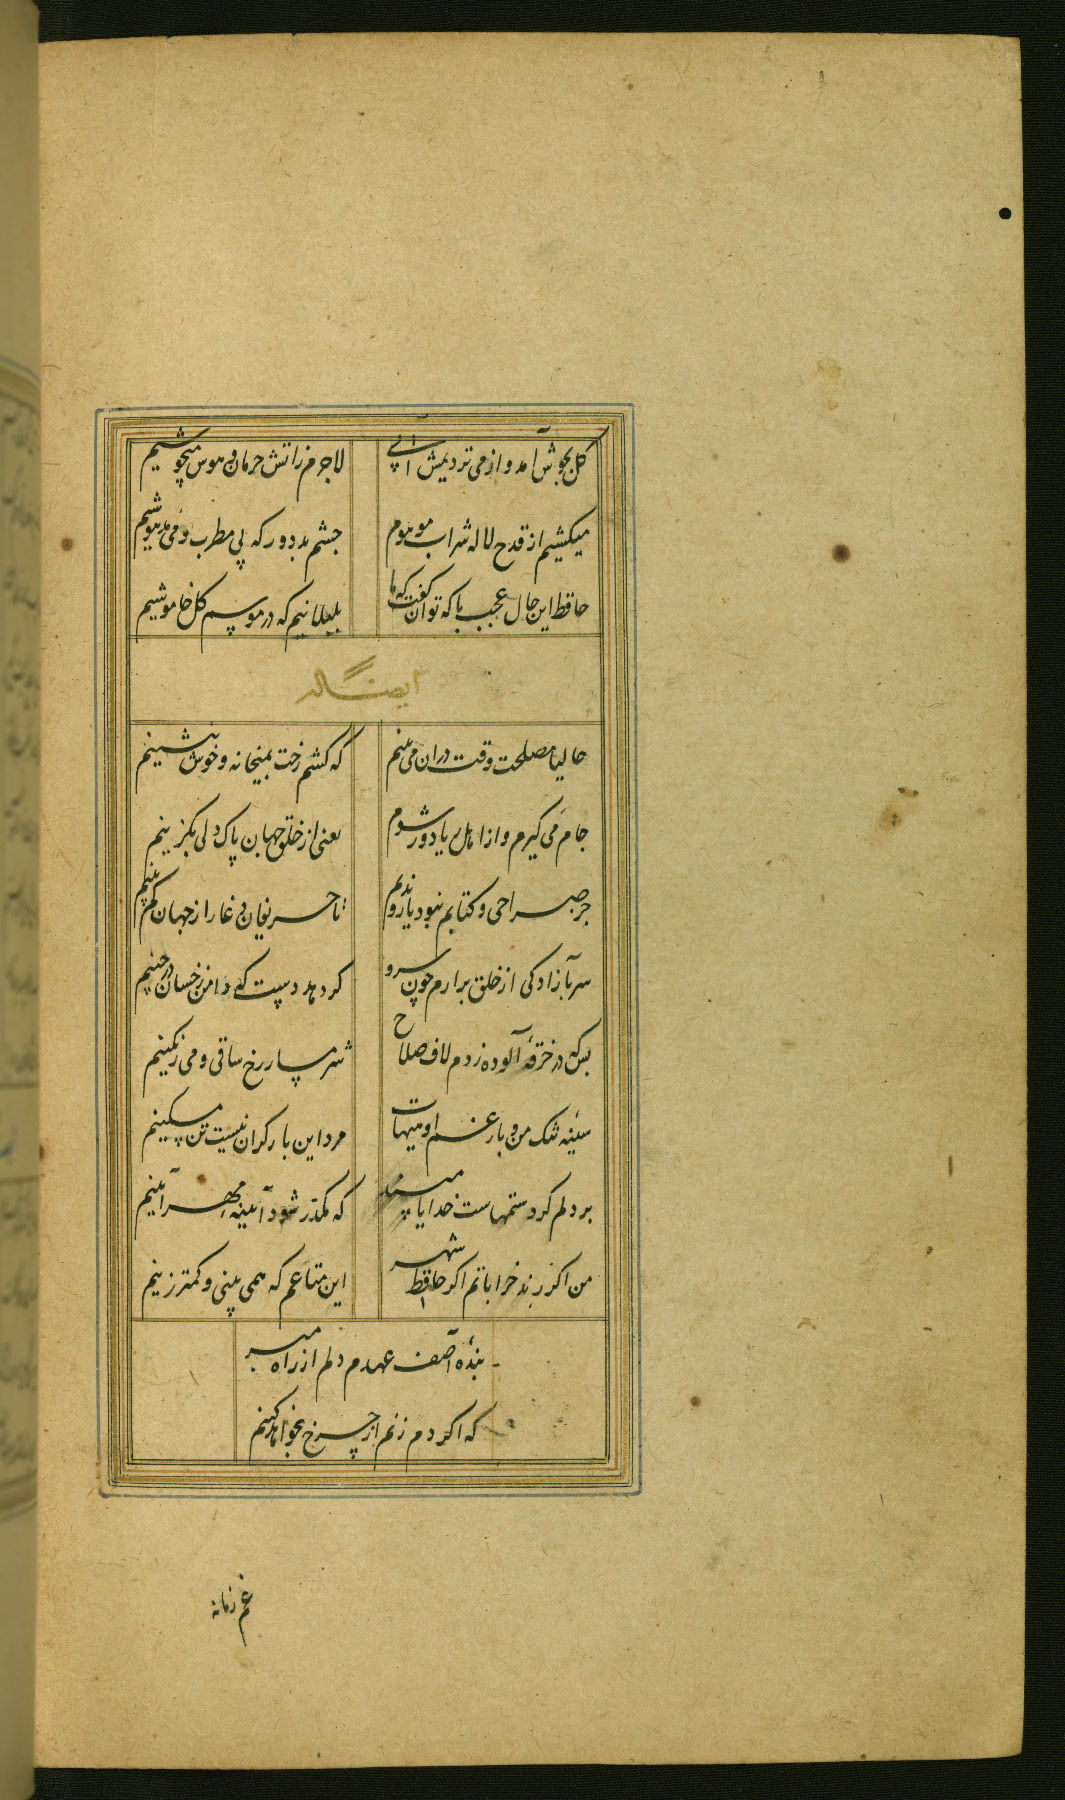 گل بجوش آمد و از می نزدیمش آبی لاجرم زاتش حرمان و هوس میجوشیم
میکشیم از قدح لاله شراب موهوم چشم بد دور که بی مطرب و می مدهوشیم
حافظ این حال عجب با که توان گفت که ما بلبلانیم که در موسم گل خاموشیم
ایضا له
حالیا مصلحت وقت دران می بینم که کشم رخت بمیخانه و خوش بنشینم
جام می گیرم و از اهل ریا دور شوم یعنی از خلق جهان پاک دلی بگزینم
جز صراحی و کتابم نبود یار و ندیم تا حریفان دغا را ز جهان کم بینم
سر بآزادگی از خلق برارم چون سرو گر دهد دست که دامن ز خسان در چینم
بس که در خرقهٔ آلوده زدم لاف صلاح شرمسار رخ ساقی و می رنگینم
سینه تنک من و بار غم او هیهات مرد این بار گران نیست تن مسکینم
بر دلم گرد ستمهاست خدایا مپسند که مکدر شود آیینه مهر آیینم
من اگر رند خراباتم اگر حافظ شهر این متاعم که همی بینی و کمتر زینم
بنده آصف عهدم دلم از راه مبر
که اگر دم زنم از چرخ بخواهد کینم
غم زمانه